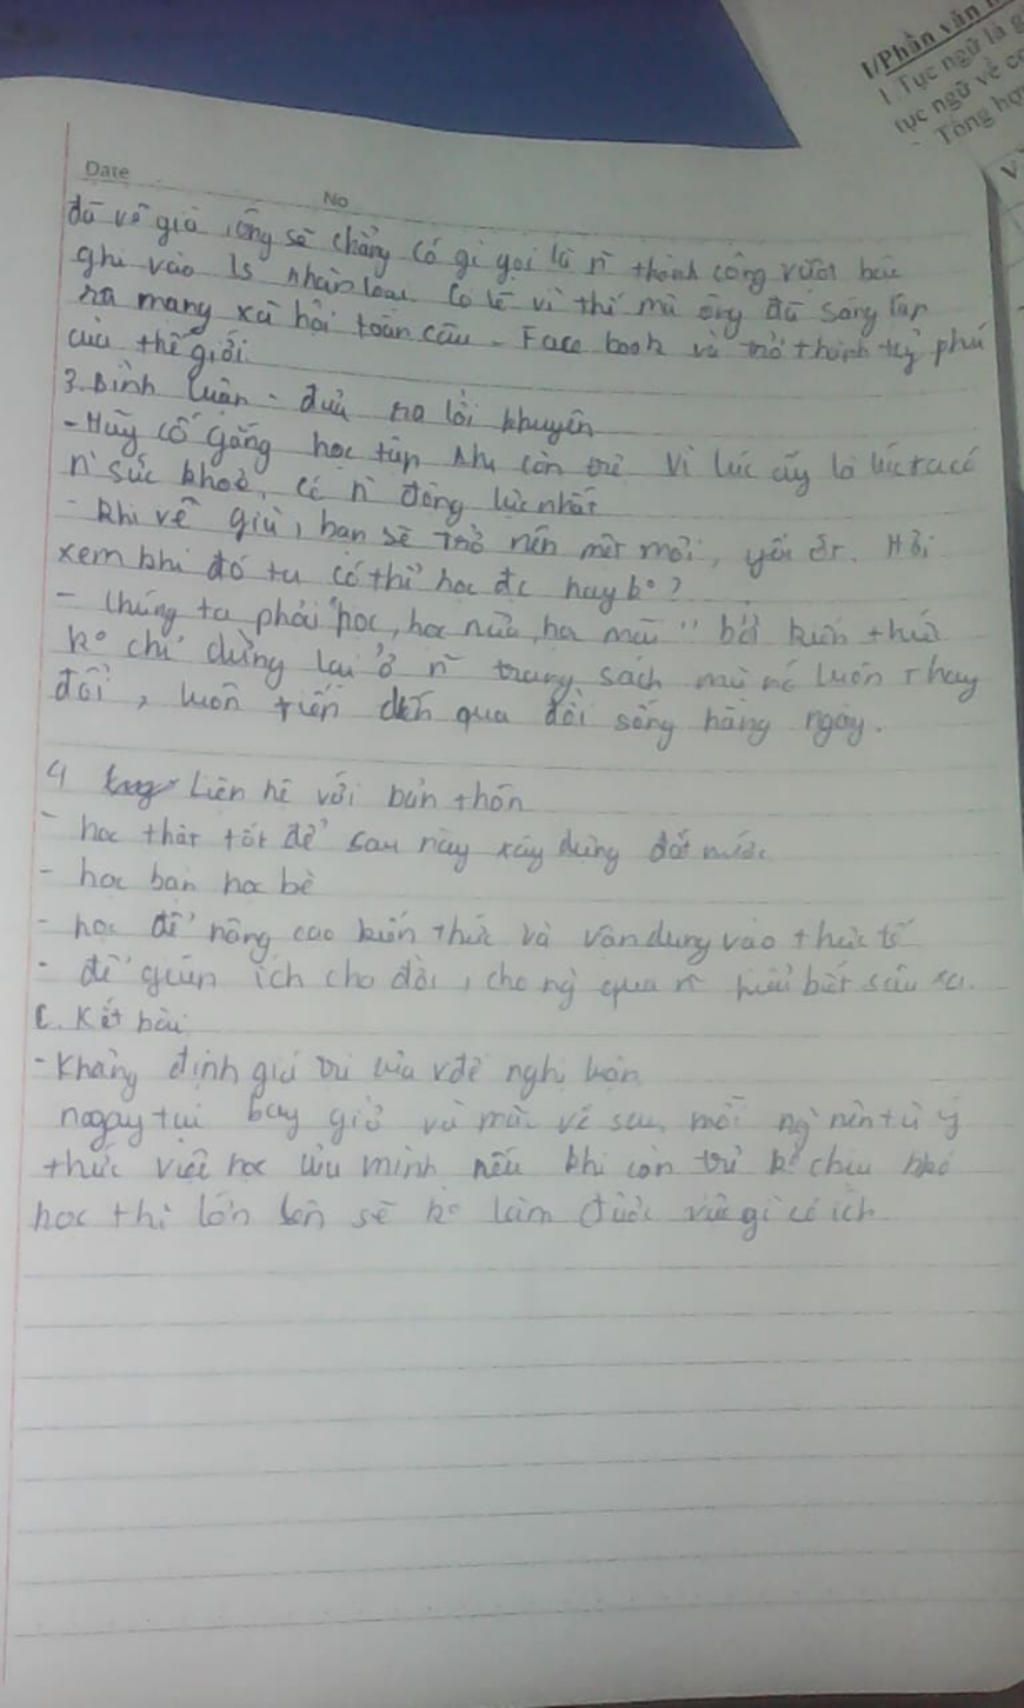 I/Phần văn
1 Tục ngữ là g
tục ngữ về co
- Tổng hợ
V
Date
No
đã về già, ông sẽ chẳng có gì gọi là n~ thành công vượt bậc
ghi vào ls nhân loại. Có lẽ vì thế mà ông đã sáng lập
ra mạng xã hội toàn cầu - Face book và trở thành tỷ phú
của thế giới
3. Bình luận - đưa ra lời khuyên
- Hãy cố gắng học tập khi còn trẻ vì lúc ấy là lúc ta có
n~ sức khoẻ, có n~ động lực nhất
- Khi về già, bạn sẽ trở nên mệt mỏi, yếu ớt. Hỏi
xem khi đó ta có thể học đc hay ko?
- Chúng ta phải "học, học nữa, học mãi" bởi kiến thức
ko chỉ dừng lại ở n~ trang sách mà nó luôn thay
đổi, luôn tiến đến qua đời sống hàng ngày.
4 Liên hệ với bản thân
- học thật tốt để sau này xây dựng đất nước
- học bạn học bè
- học để nâng cao kiến thức và vận dụng vào thực tế
- để giúp ích cho đời, cho ng` qua n~ hiểu biết sâu xa.
C. Kết bài
- Khẳng định giá trị của vđề nghị luận
ngay tại bây giờ và mãi về sau, mỗi ng` nên tự ý
thức việc học của mình nếu khi còn trẻ ko chịu khó
học thì lớn lên sẽ ko làm được việc gì có ích